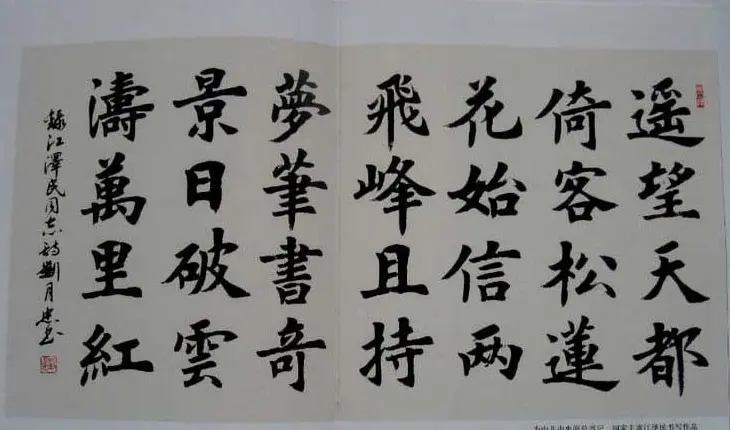 遥望天都
倚客松蓮
花始信两
飛峰且持
夢筆書奇
景日破雲
濤萬里紅
錄江澤民同志詩劉月忠書